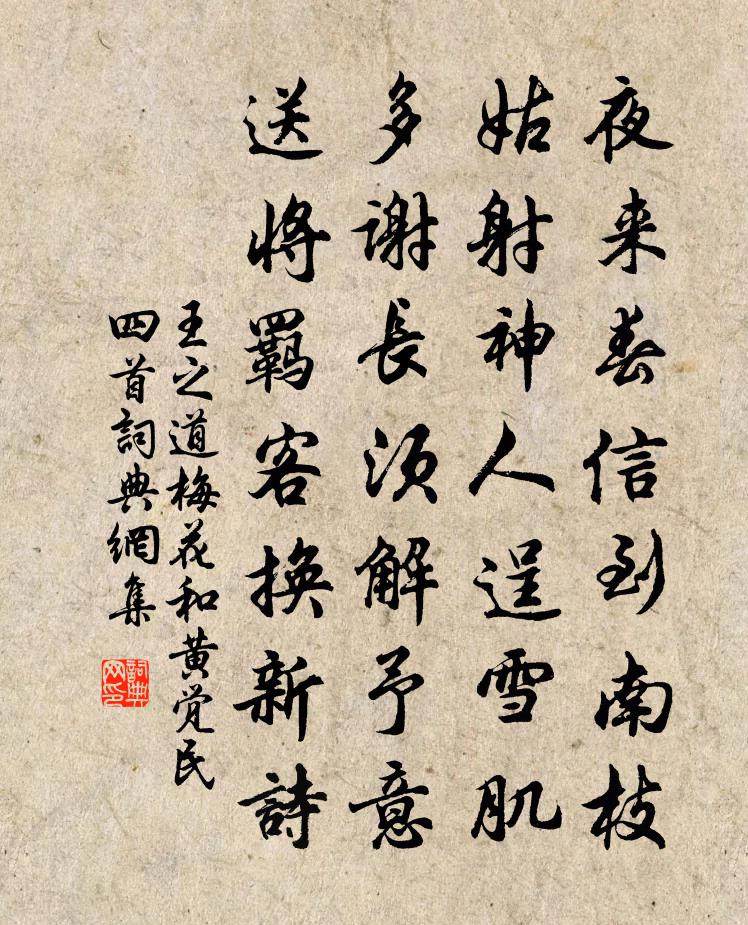 夜来春信到南枝
姑射神人逞雪肌
多謝長須解予意
送將羈客換新詩
王之道梅花和黄覚民
四首詞典網集
詞典网印